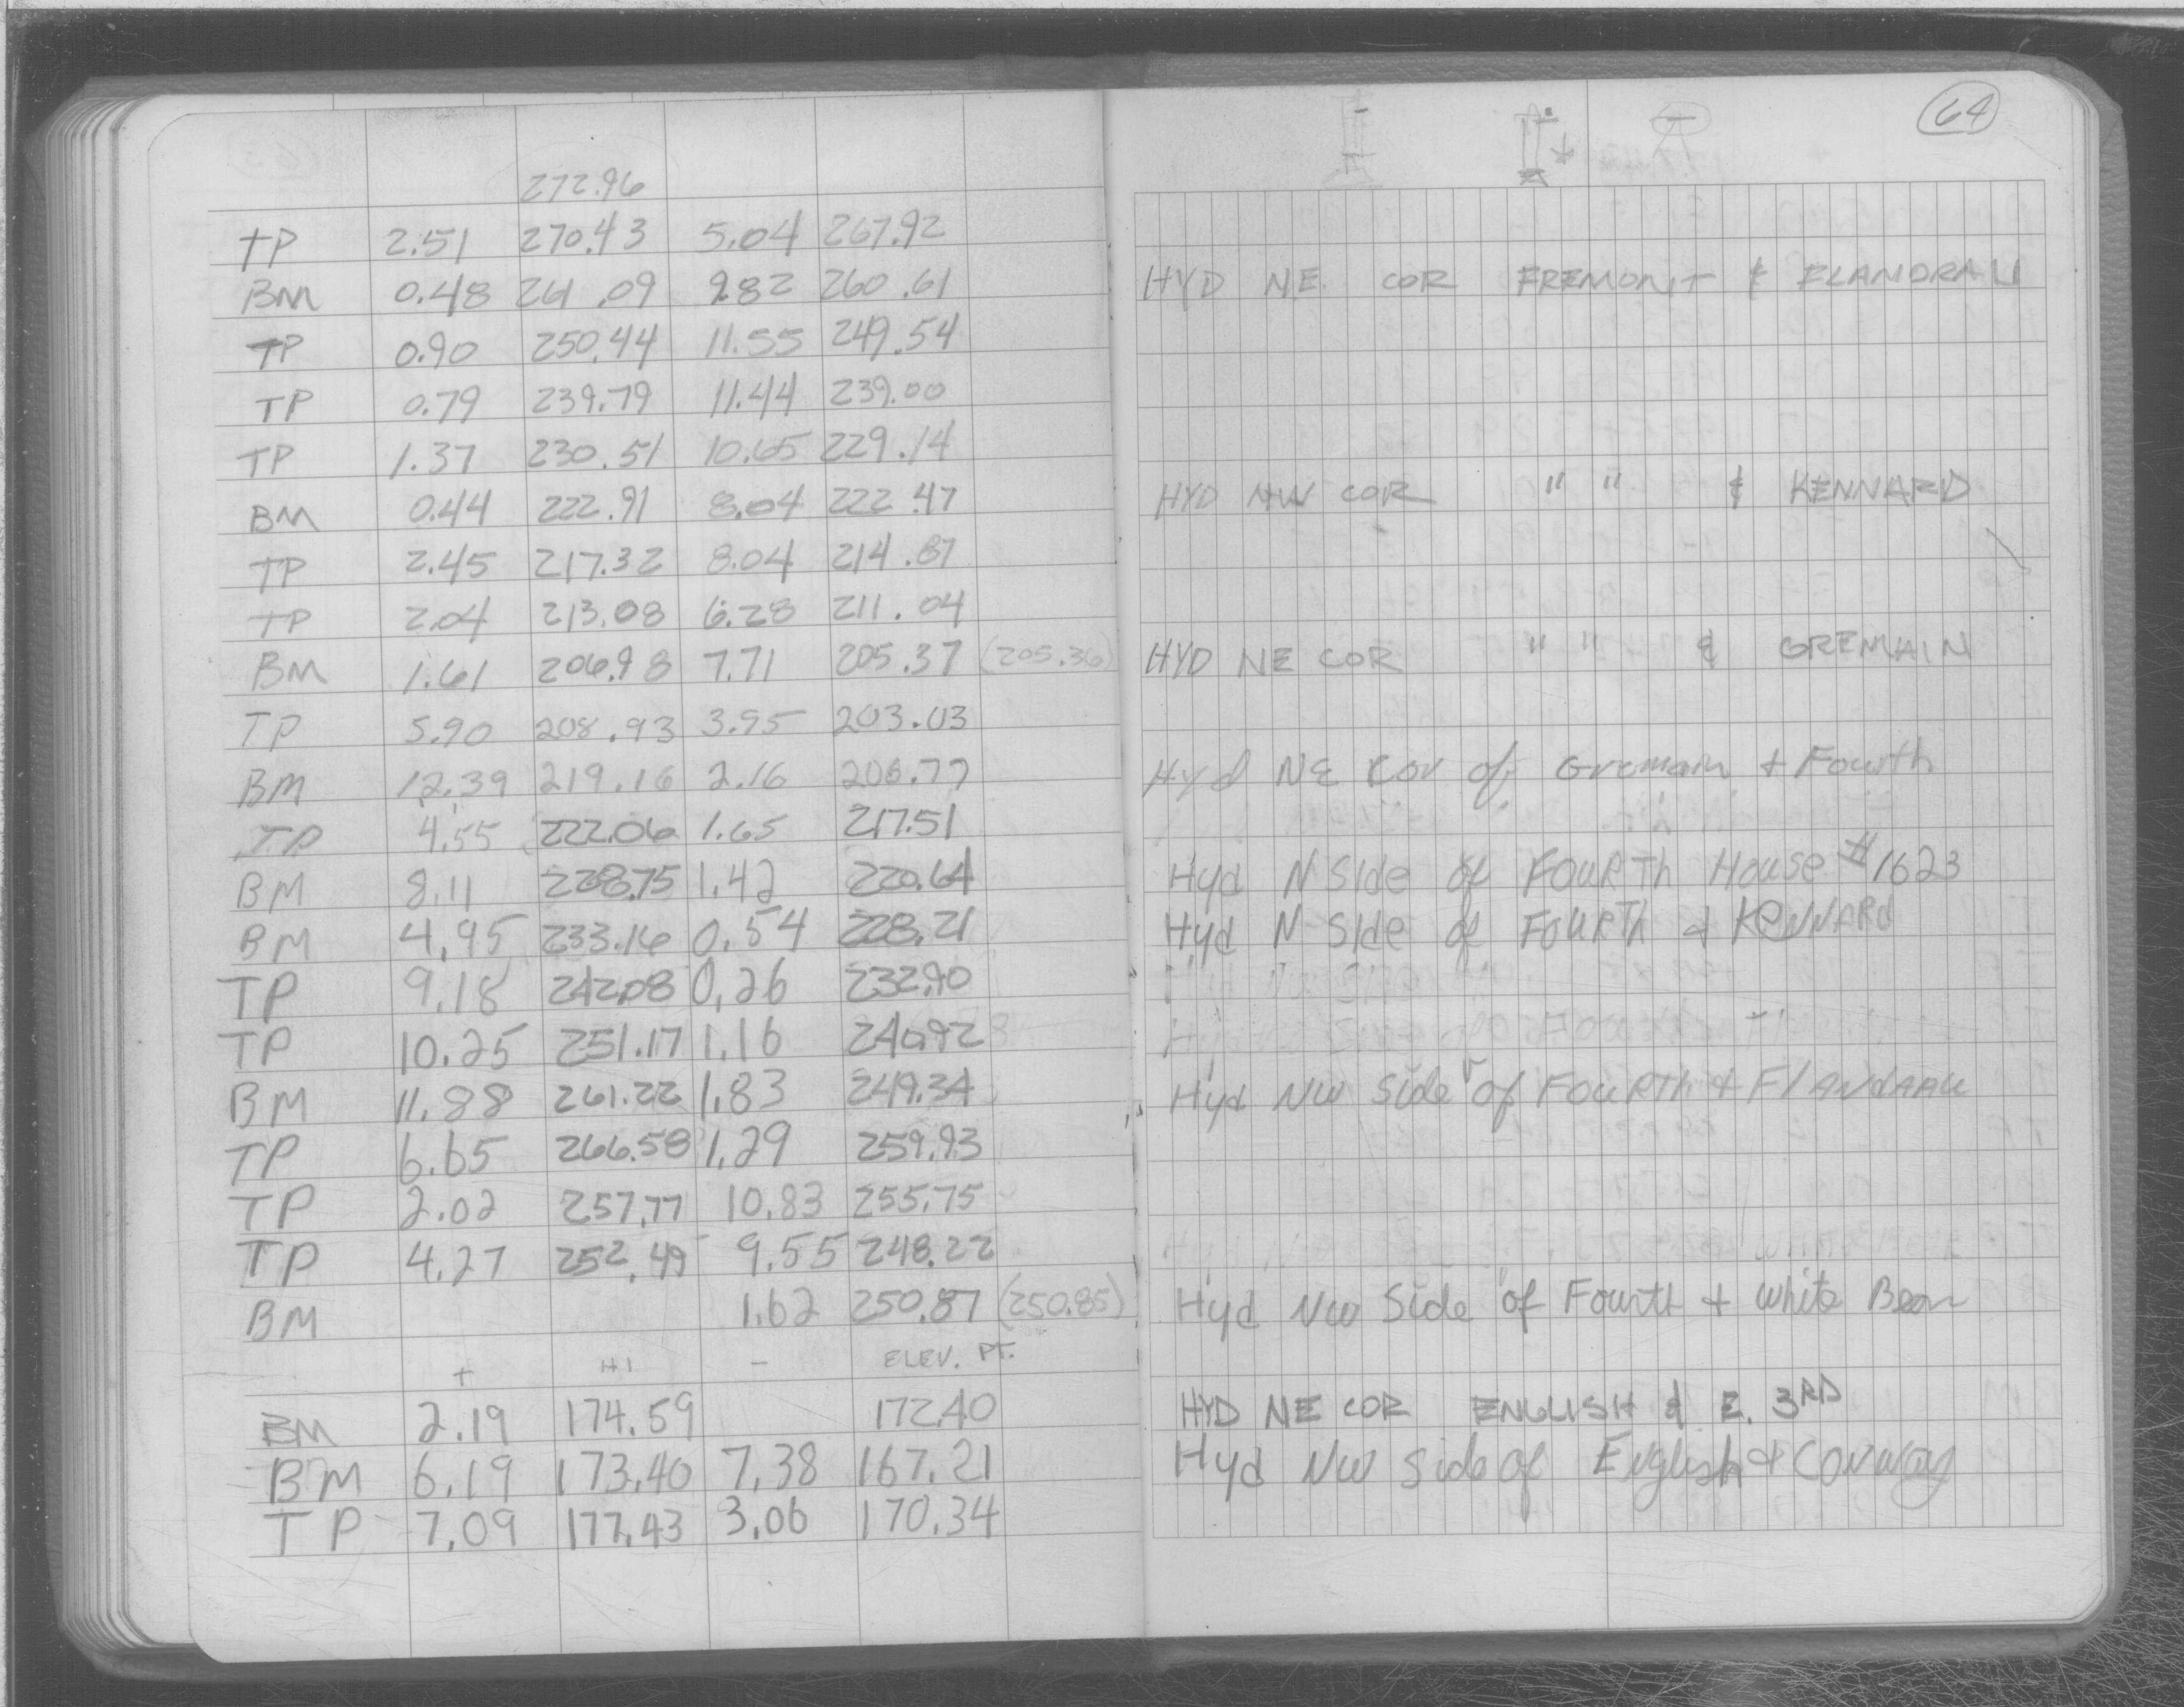 64
272.96
TP 2.51 270.43 5.04 267.92
BM 0.48 261.09 9.82 260.61 HYD N.E. COR FREMONT & FLANDRAU
TP 0.90 250.44 11.55 249.54
TP 0.79 239.79 11.44 239.00
TP 1.37 230.51 10.65 229.14
BM 0.44 222.91 8.04 222.47 HYD NW COR " " & KENNARD
TP 2.45 217.32 8.04 214.87
TP 2.04 213.08 6.28 211.04
BM 1.61 206.98 7.71 205.37 (205.36) HYD NE COR " " & GREMAIN
TP 5.90 208.93 3.95 203.03
BM 12.39 219.16 2.16 206.77 Hyd NE Cor of Gremain + Fourth
TP 4.55 222.06 1.65 217.51
BM 8.11 228.75 1.42 220.64 Hyd N Side of FOURTh House #1623
BM 4.95 233.16 0.54 228.21 Hyd N Side of FOURTh & KeNNARd
TP 9.18 242.08 0.26 232.90
TP 10.25 251.17 1.16 240.92
BM 11.88 261.22 1.83 249.34 Hyd NW Side of FOURTh & FlANdRAU
TP 6.65 266.58 1.29 259.93
TP 2.02 257.77 10.83 255.75
TP 4.27 252.49 9.55 248.22
BM 1.62 250.87 (250.85) Hyd NW Side of Fourth + White Bear
+ HI - ELEV. PT.
BM 2.19 174.59 172.40 HYD NE COR ENGLISH & E. 3RD
BM 6.19 173.40 7.38 167.21 Hyd NW Side of English & Conway
TP 7.09 177.43 3.06 170.34